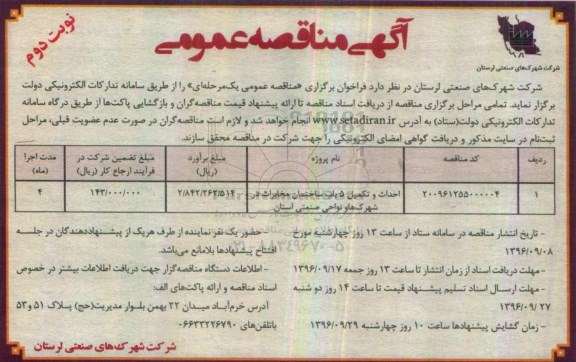 نوبت دوم
آگهی مناقصه عمومی
شرکت شهرک‌های صنعتی لرستان
شرکت شهرک‌های صنعتی لرستان در نظر دارد فراخوان برگزاری «مناقصه عمومی یک‌مرحله‌ای» را از طریق سامانه تدارکات الکترونیکی دولت
برگزار نماید. تمامی مراحل برگزاری مناقصه از دریافت اسناد مناقصه تا ارائه پیشنهاد قیمت مناقصه‌گران و بازگشایی پاکت‌ها از طریق درگاه سامانه
تدارکات الکترونیکی دولت(ستاد) به آدرس www.setadiran.ir انجام خواهد شد و لازم است مناقصه‌گران در صورت عدم عضویت قبلی، مراحل
ثبت‌نام در سایت مذکور و دریافت گواهی امضای الکترونیکی را جهت شرکت در مناقصه محقق سازند.
ردیف
کد مناقصه
نام پروژه
مبلغ برآورد (ریال)
مبلغ تضمین شرکت در فرآیند ارجاع کار (ریال)
مدت اجرا (ماه)
۱
۲۰۰۹۶۱۲۵۵۰۰۰۰۰۴
احداث و تکمیل ۵ باب ساختمان مخابرات در
شهرک‌ها و نواحی صنعتی استان
۲/۸۴۲/۲۶۲/۵۱۴
۱۴۳/۰۰۰/۰۰۰
۴
- تاریخ انتشار مناقصه در سامانه ستاد از ساعت ۱۳ روز چهارشنبه مورخ
۱۳۹۶/۰۹/۰۸
- مهلت دریافت اسناد از زمان انتشار تا ساعت ۱۳ روز جمعه ۱۳۹۶/۰۹/۱۷
- مهلت ارسال اسناد تسلیم پیشنهاد قیمت تا ساعت ۱۴ روز دو شنبه
۱۳۹۶/۰۹/۲۷
- زمان گشایش پیشنهادها ساعت ۱۰ روز چهارشنبه ۱۳۹۶/۰۹/۲۹
- حضور یک نفر نماینده از طرف هریک از پیشنهاددهندگان در جلسه
افتتاح پیشنهادها بلامانع می‌باشد.
- اطلاعات دستگاه مناقصه‌گزار جهت دریافت اطلاعات بیشتر در خصوص
اسناد مناقصه و ارائه پاکت‌های الف:
آدرس خرم‌آباد میدان ۲۲ بهمن بلوار مدیریت(حج) پلاک ۵۱ و ۵۳
باتلفن‌های ۰۶۶۳۳۲۲۶۷۹۰
شرکت شهرک‌های صنعتی لرستان